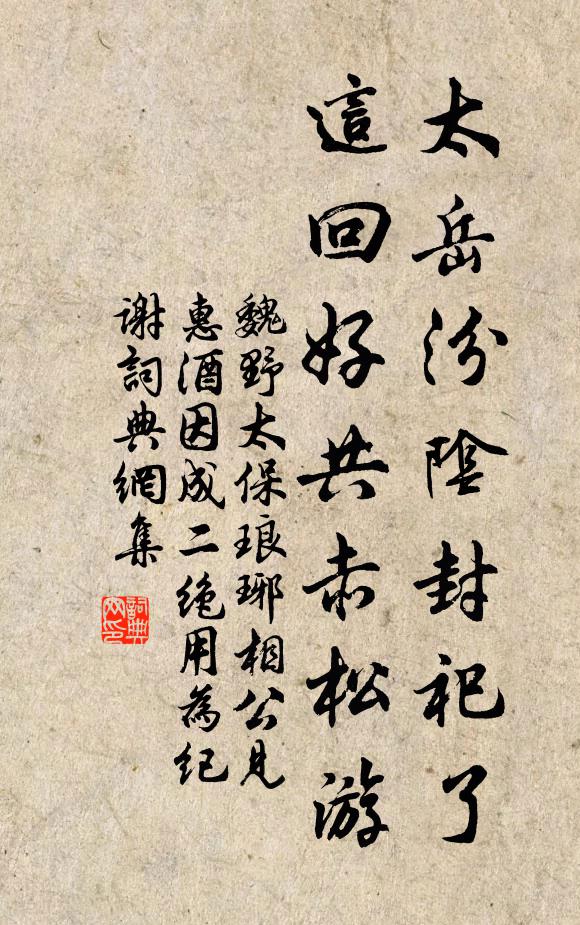 太岳汾陰封祀了
這回好共赤松游
魏野太保琅琊相公見
惠酒因成二絶用為紀
謝詞典網集
詞典网印